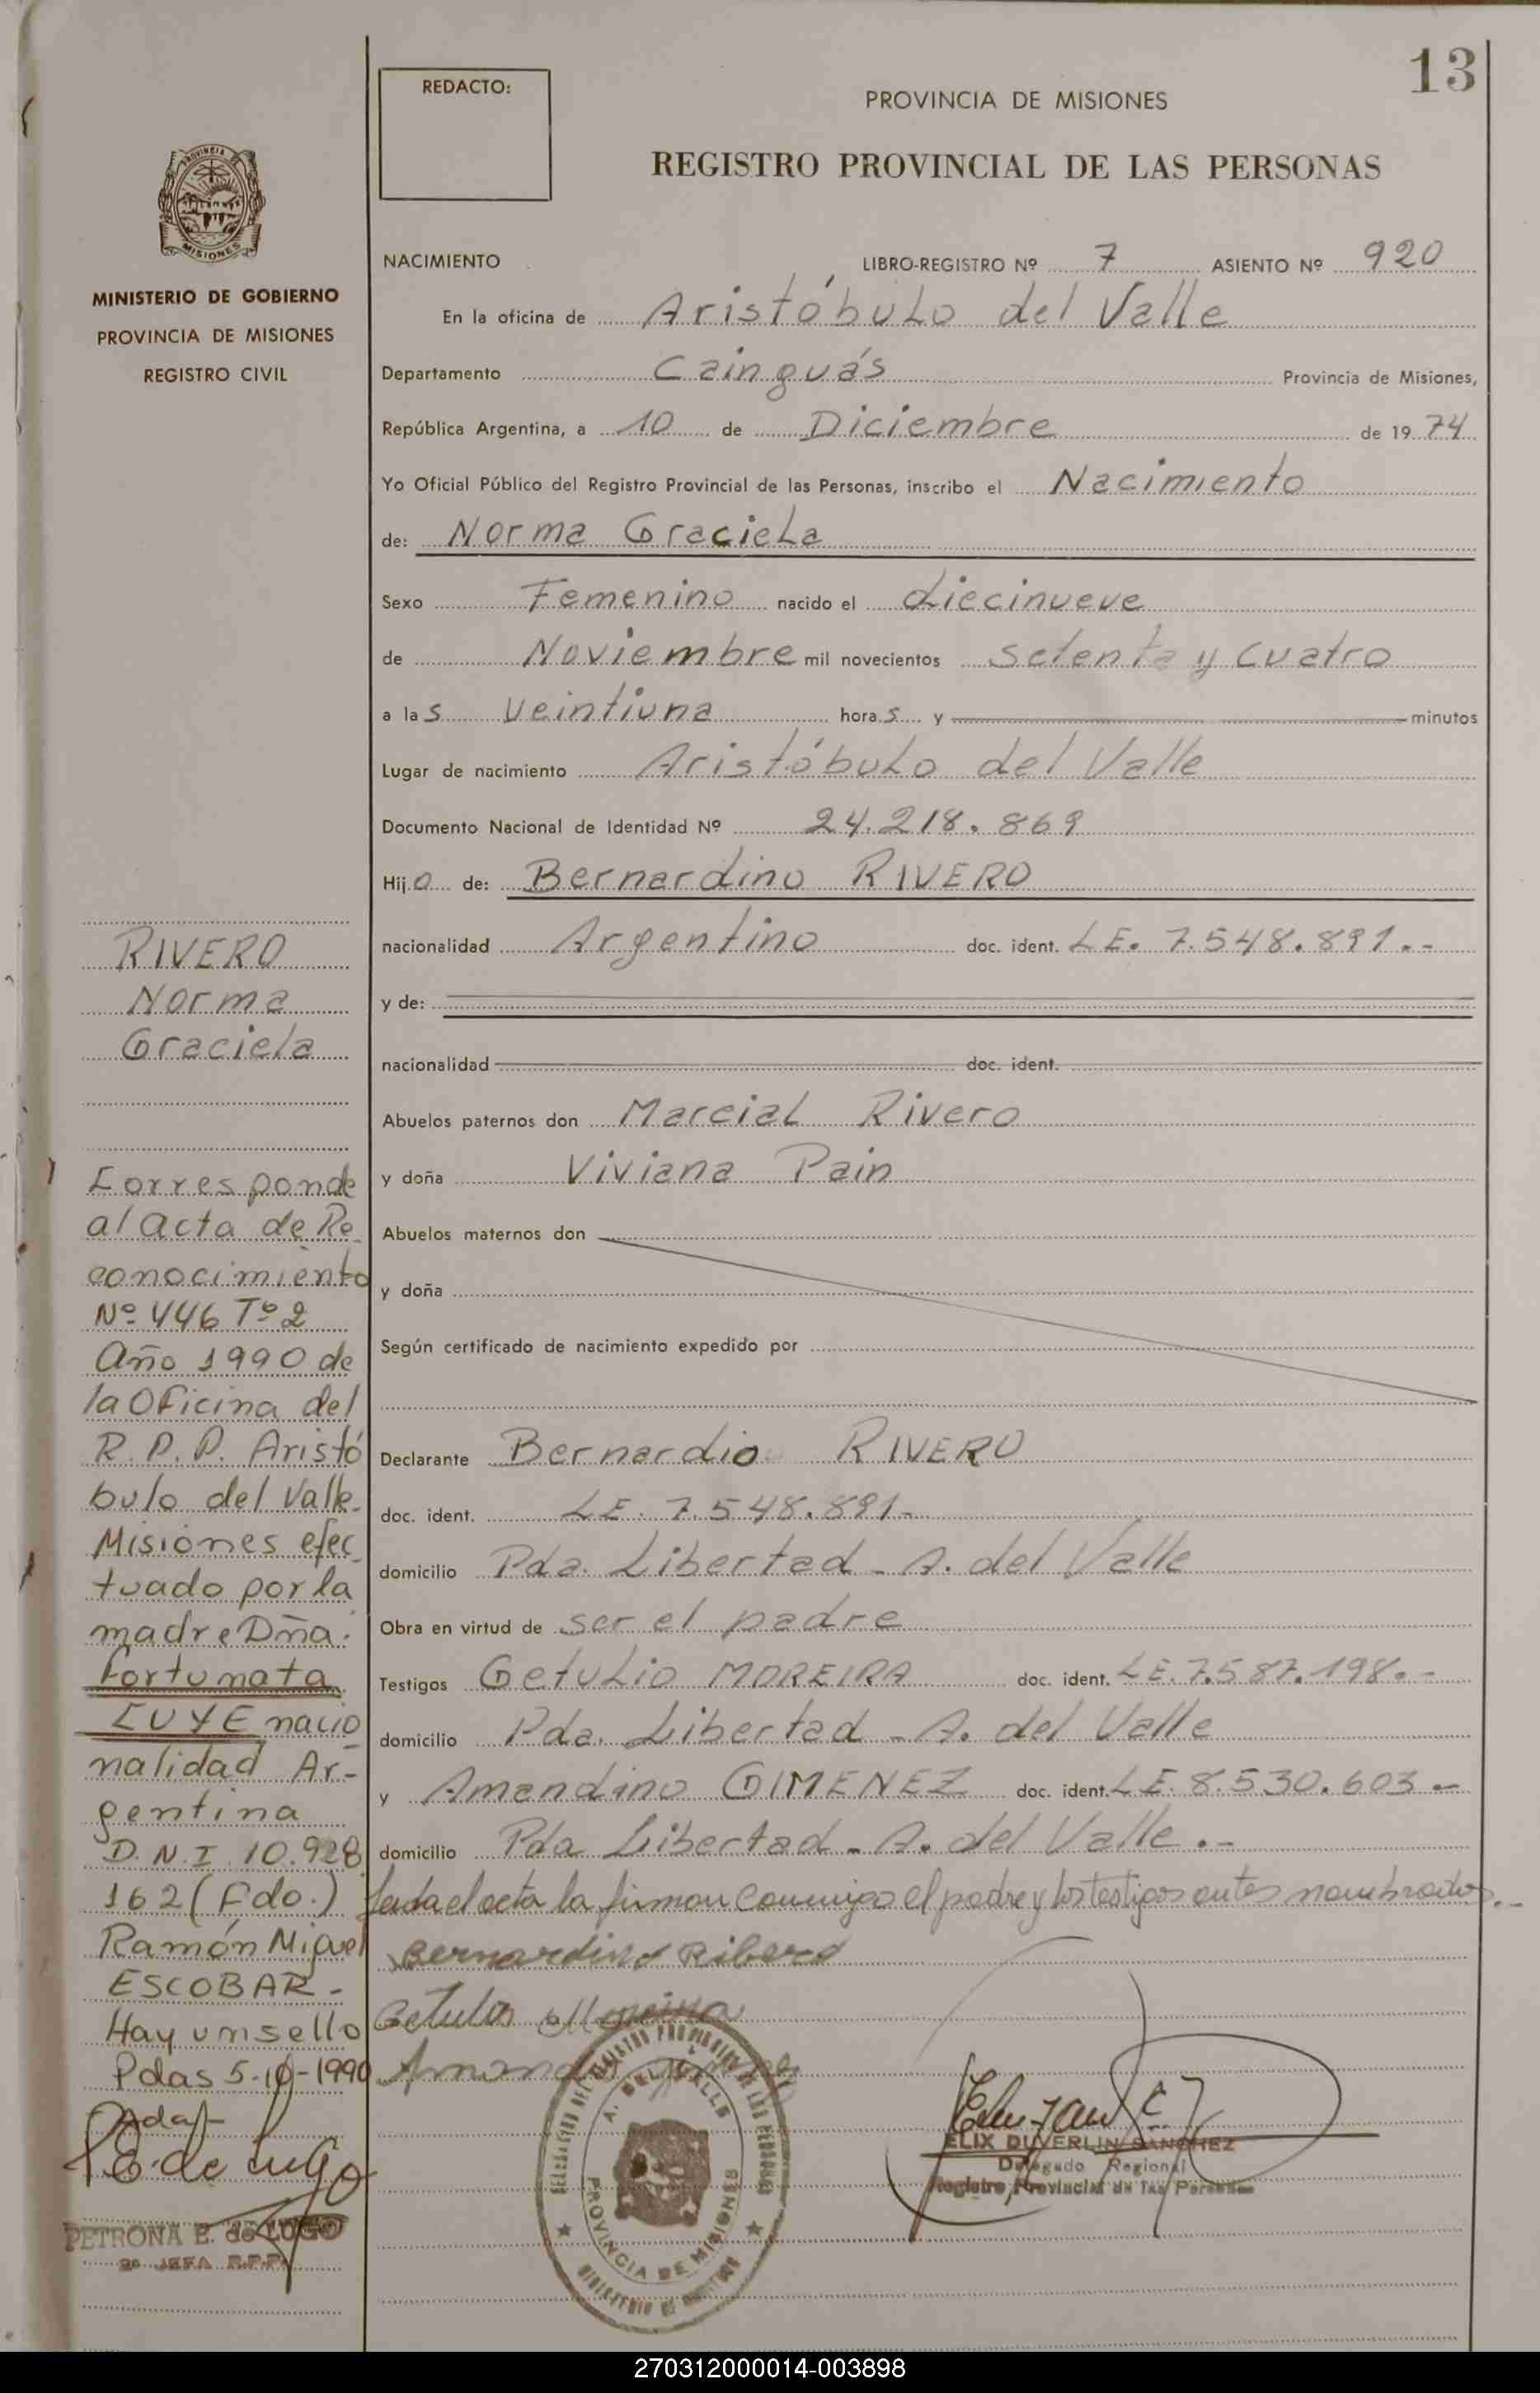 13
REDACTO:
PROVINCIA DE MISIONES
REGISTRO PROVINCIAL DE LAS PERSONAS
PROVINCIA DE
MISIONES
MINISTERIO DE GOBIERNO
PROVINCIA DE MISIONES
REGISTRO CIVIL
NACIMIENTO LIBRO-REGISTRO Nº 7 ASIENTO Nº 920
En la oficina de Aristóbulo del Valle
Departamento Cainguás Provincia de Misiones,
República Argentina, a 10 de Diciembre de 1974
Yo Oficial Público del Registro Provincial de las Personas, inscribo el Nacimiento
de: Norma Graciela
Sexo Femenino nacido el diecinueve
de Noviembre mil novecientos setenta y cuatro
a las veintiuna horas y minutos
Lugar de nacimiento Aristóbulo del Valle
Documento Nacional de Identidad Nº 24.218.869
Hijo de: Bernardino RIVERO
nacionalidad Argentino doc. ident. LE. 7.548.891.-
y de:
nacionalidad doc. ident.
Abuelos paternos don Marcial Rivero
y doña Viviana Pain
Abuelos maternos don
y doña
Según certificado de nacimiento expedido por
Declarante Bernardio RIVERO
doc. ident. LE. 7.548.891-
domicilio Pda. Libertad - A. del Valle
Obra en virtud de ser el padre
Testigos Getulio MOREIRA doc. ident. LE. 7.587.198.-
domicilio Pda. Libertad - A. del Valle
y Amandino GIMENEZ doc. ident. LE. 8.530.603-
domicilio Pda Libertad - A. del Valle.-
Leida el acta la firman conmigo el padre y los testigos antes nombrados.-
Bernardino Ribero
Getulio Moreira
RIVERO
Norma
Graciela
Corresponde
al Acta de Re
conocimiento
Nº 446 Tº 2
Año 1990 de
la Oficina del
R.P.P. Aristó
bulo del Valle
Misiones efec
tuado por la
madre Dña.
Fortunata
CUYE nacio
nalidad Ar-
gentina
D.N.I. 10.928
162 (Fdo.)
Ramón Miguel
ESCOBAR-
Hay un sello
Pdas 5-10-1990
P E. de Lugo
PETRONA E. de LUGO
JEFA R.P.P.
A. DEL VALLE
PROVINCIA DE MISIONES
ELIX DUVERLIN SANCHEZ
Delegado Regional
Registro Provincial de las Personas
270312000014-003898